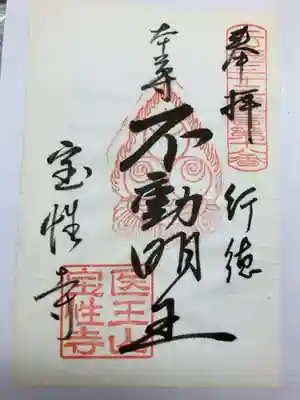 奉拝
行徳
本尊
不動明王
宝性寺
医王山
宝性寺